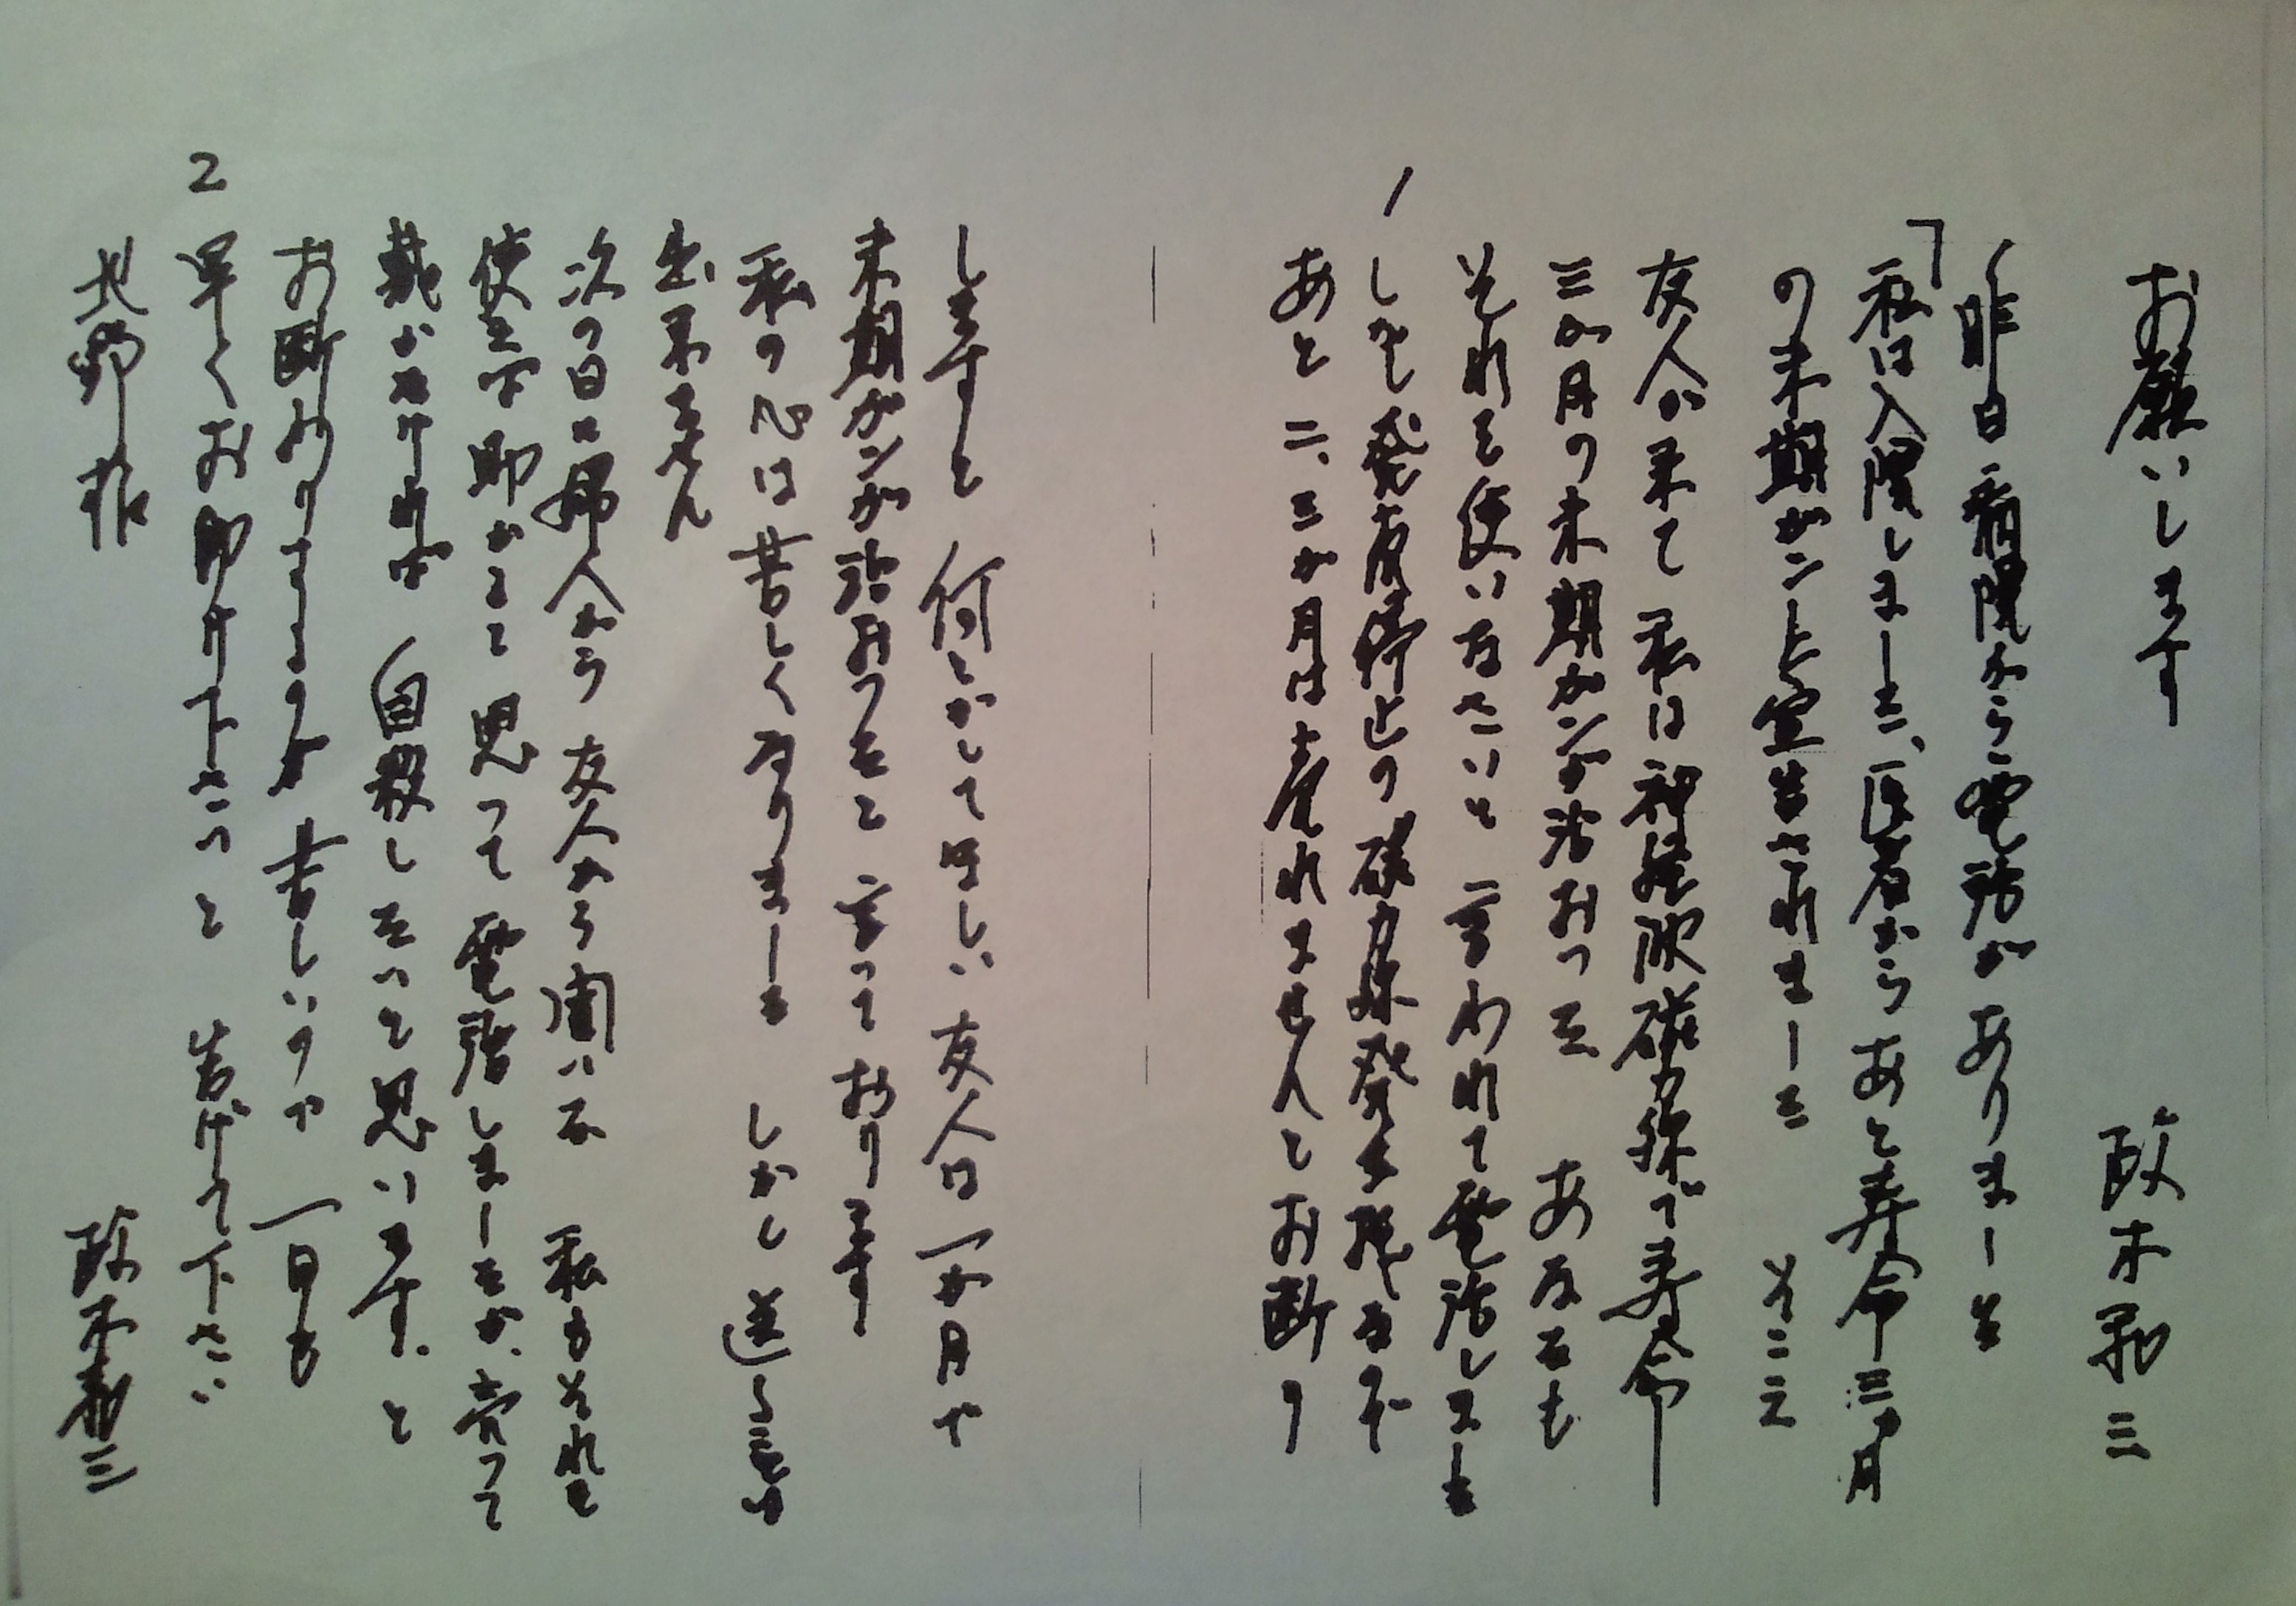 お願いします 政木和三
昨日病院から電話がありました
「私は入院しました、医者からあと寿命三ヶ月
の末期ガンと宣告されました そこえ
友人が来て 私は神経波磁力線で寿命
三か月の末期ガンが治おった あなたも
それを使いなさいと言われて電話しました
しかし発売停止の磁力線発生機なので
1
あと二、三か月は売れませんとお断り
しますと 何とかしてほしい 友人は一か月で
末期ガンが治おったと言っております
私の心は苦しくなりました しかし送る事は
出来ません
次の日に婦人から 友人から聞いた 私もそれを
使えば助かると思って電話しましたが、売って
戴かなければ 自殺したいと思います。と
お断わりするのが苦しいので 一日も
2
早くお助け下さいと 告げて下さい
政木和三